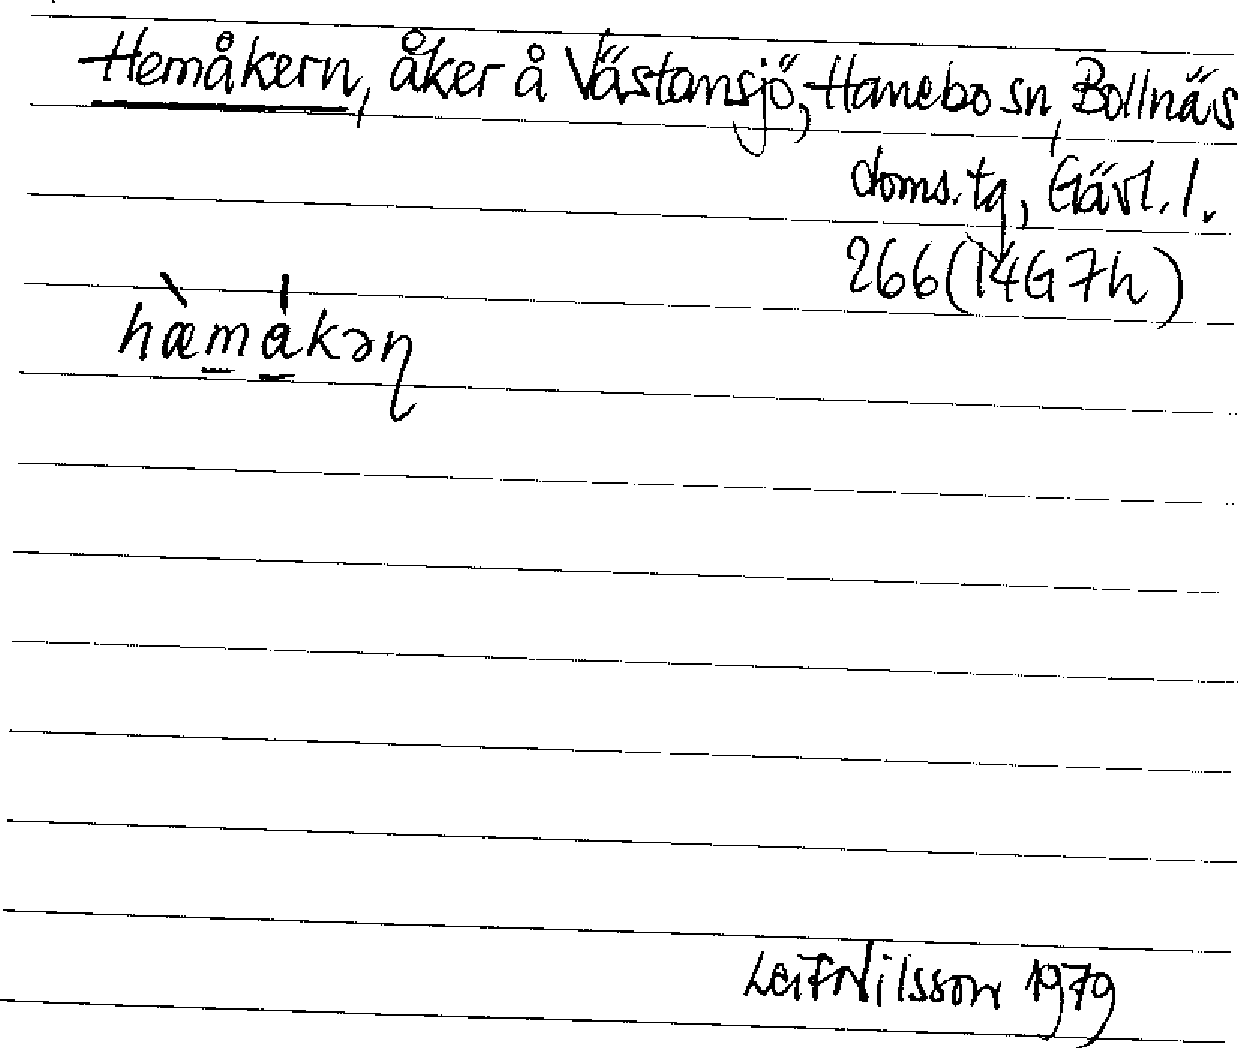 Hemåkern, åker å Västansjö, Hanebo sn, Bollnäs
doms. tg, Gävl. l.
266 (14G 7h)
hæ̀måkəɳ
Leif Nilsson 1979